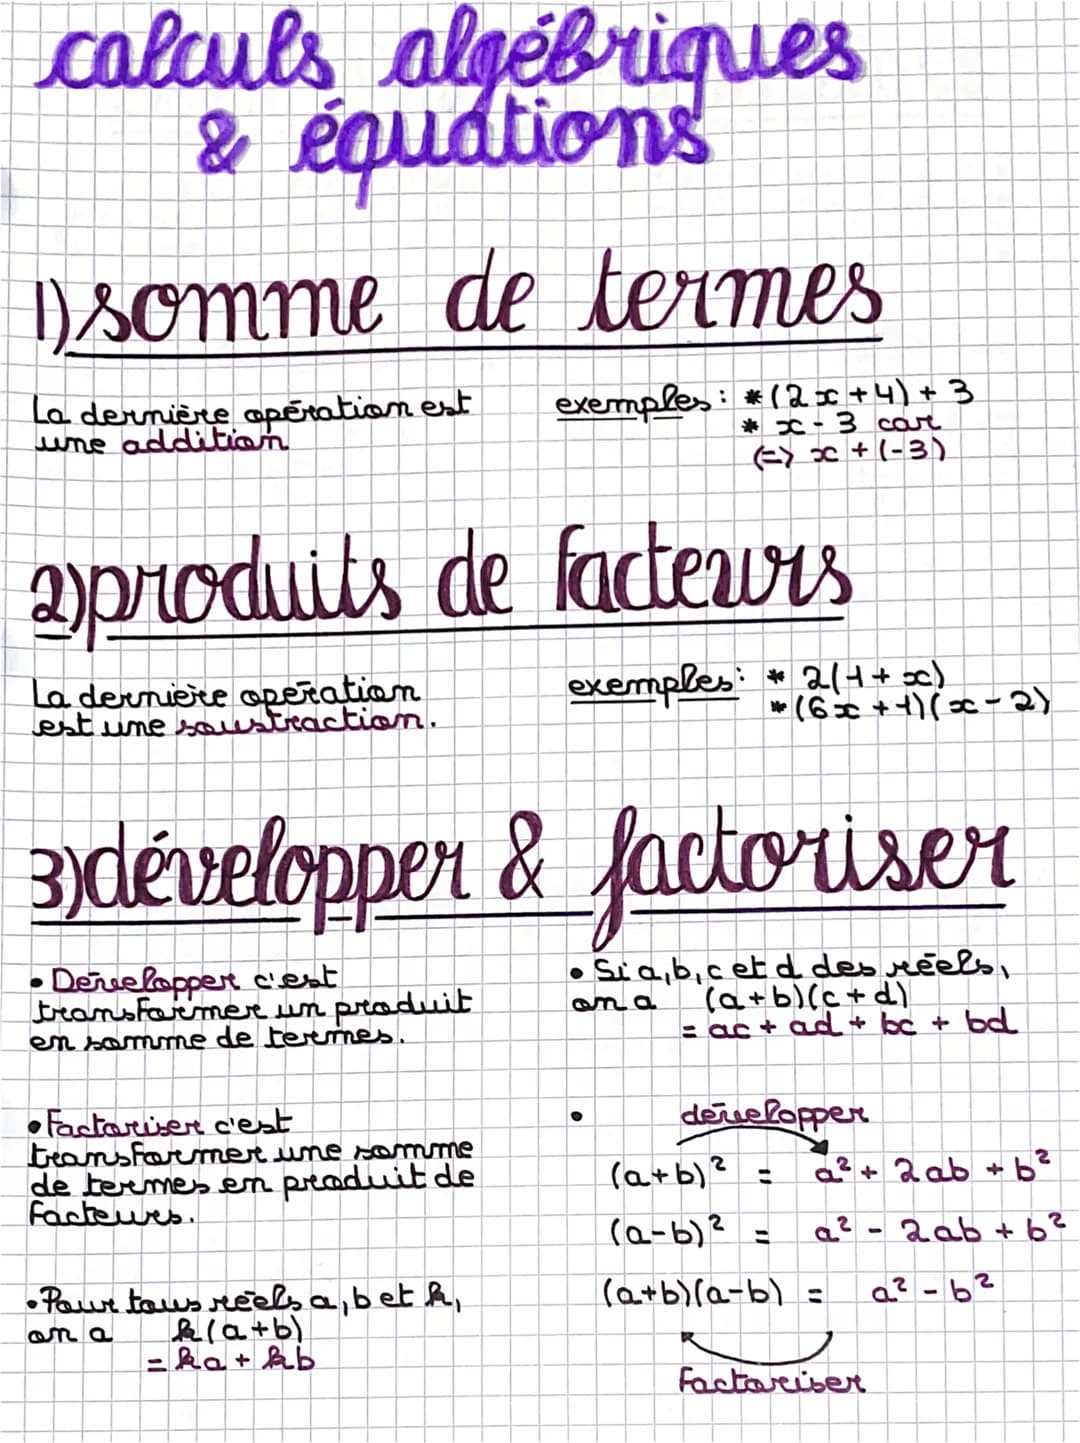 calculs algébriques
& équations
1) somme de termes
La dernière opération est
une addition
exemples : * (2x + 4) + 3
* x - 3 car
(=) x + (-3)
2) produits de facteurs
La dernière opération
est une soustraction.
exemples : * 2(1 + x)
* (6x + 1)(x - 2)
3) développer & factoriser
• Développer c'est
transformer un produit
en somme de termes.
• Si a, b, c et d des réels,
on a (a+b)(c+d)
= ac + ad + bc + bd
• Factoriser c'est
transformer une somme
de termes en produit de
facteurs.
• développer
(a+b)² = a² + 2ab + b²
(a-b)² = a² - 2ab + b²
(a+b)(a-b) = a² - b²
factoriser
• Pour tous réels a, b et k,
on a k(a+b)
= ka + kb